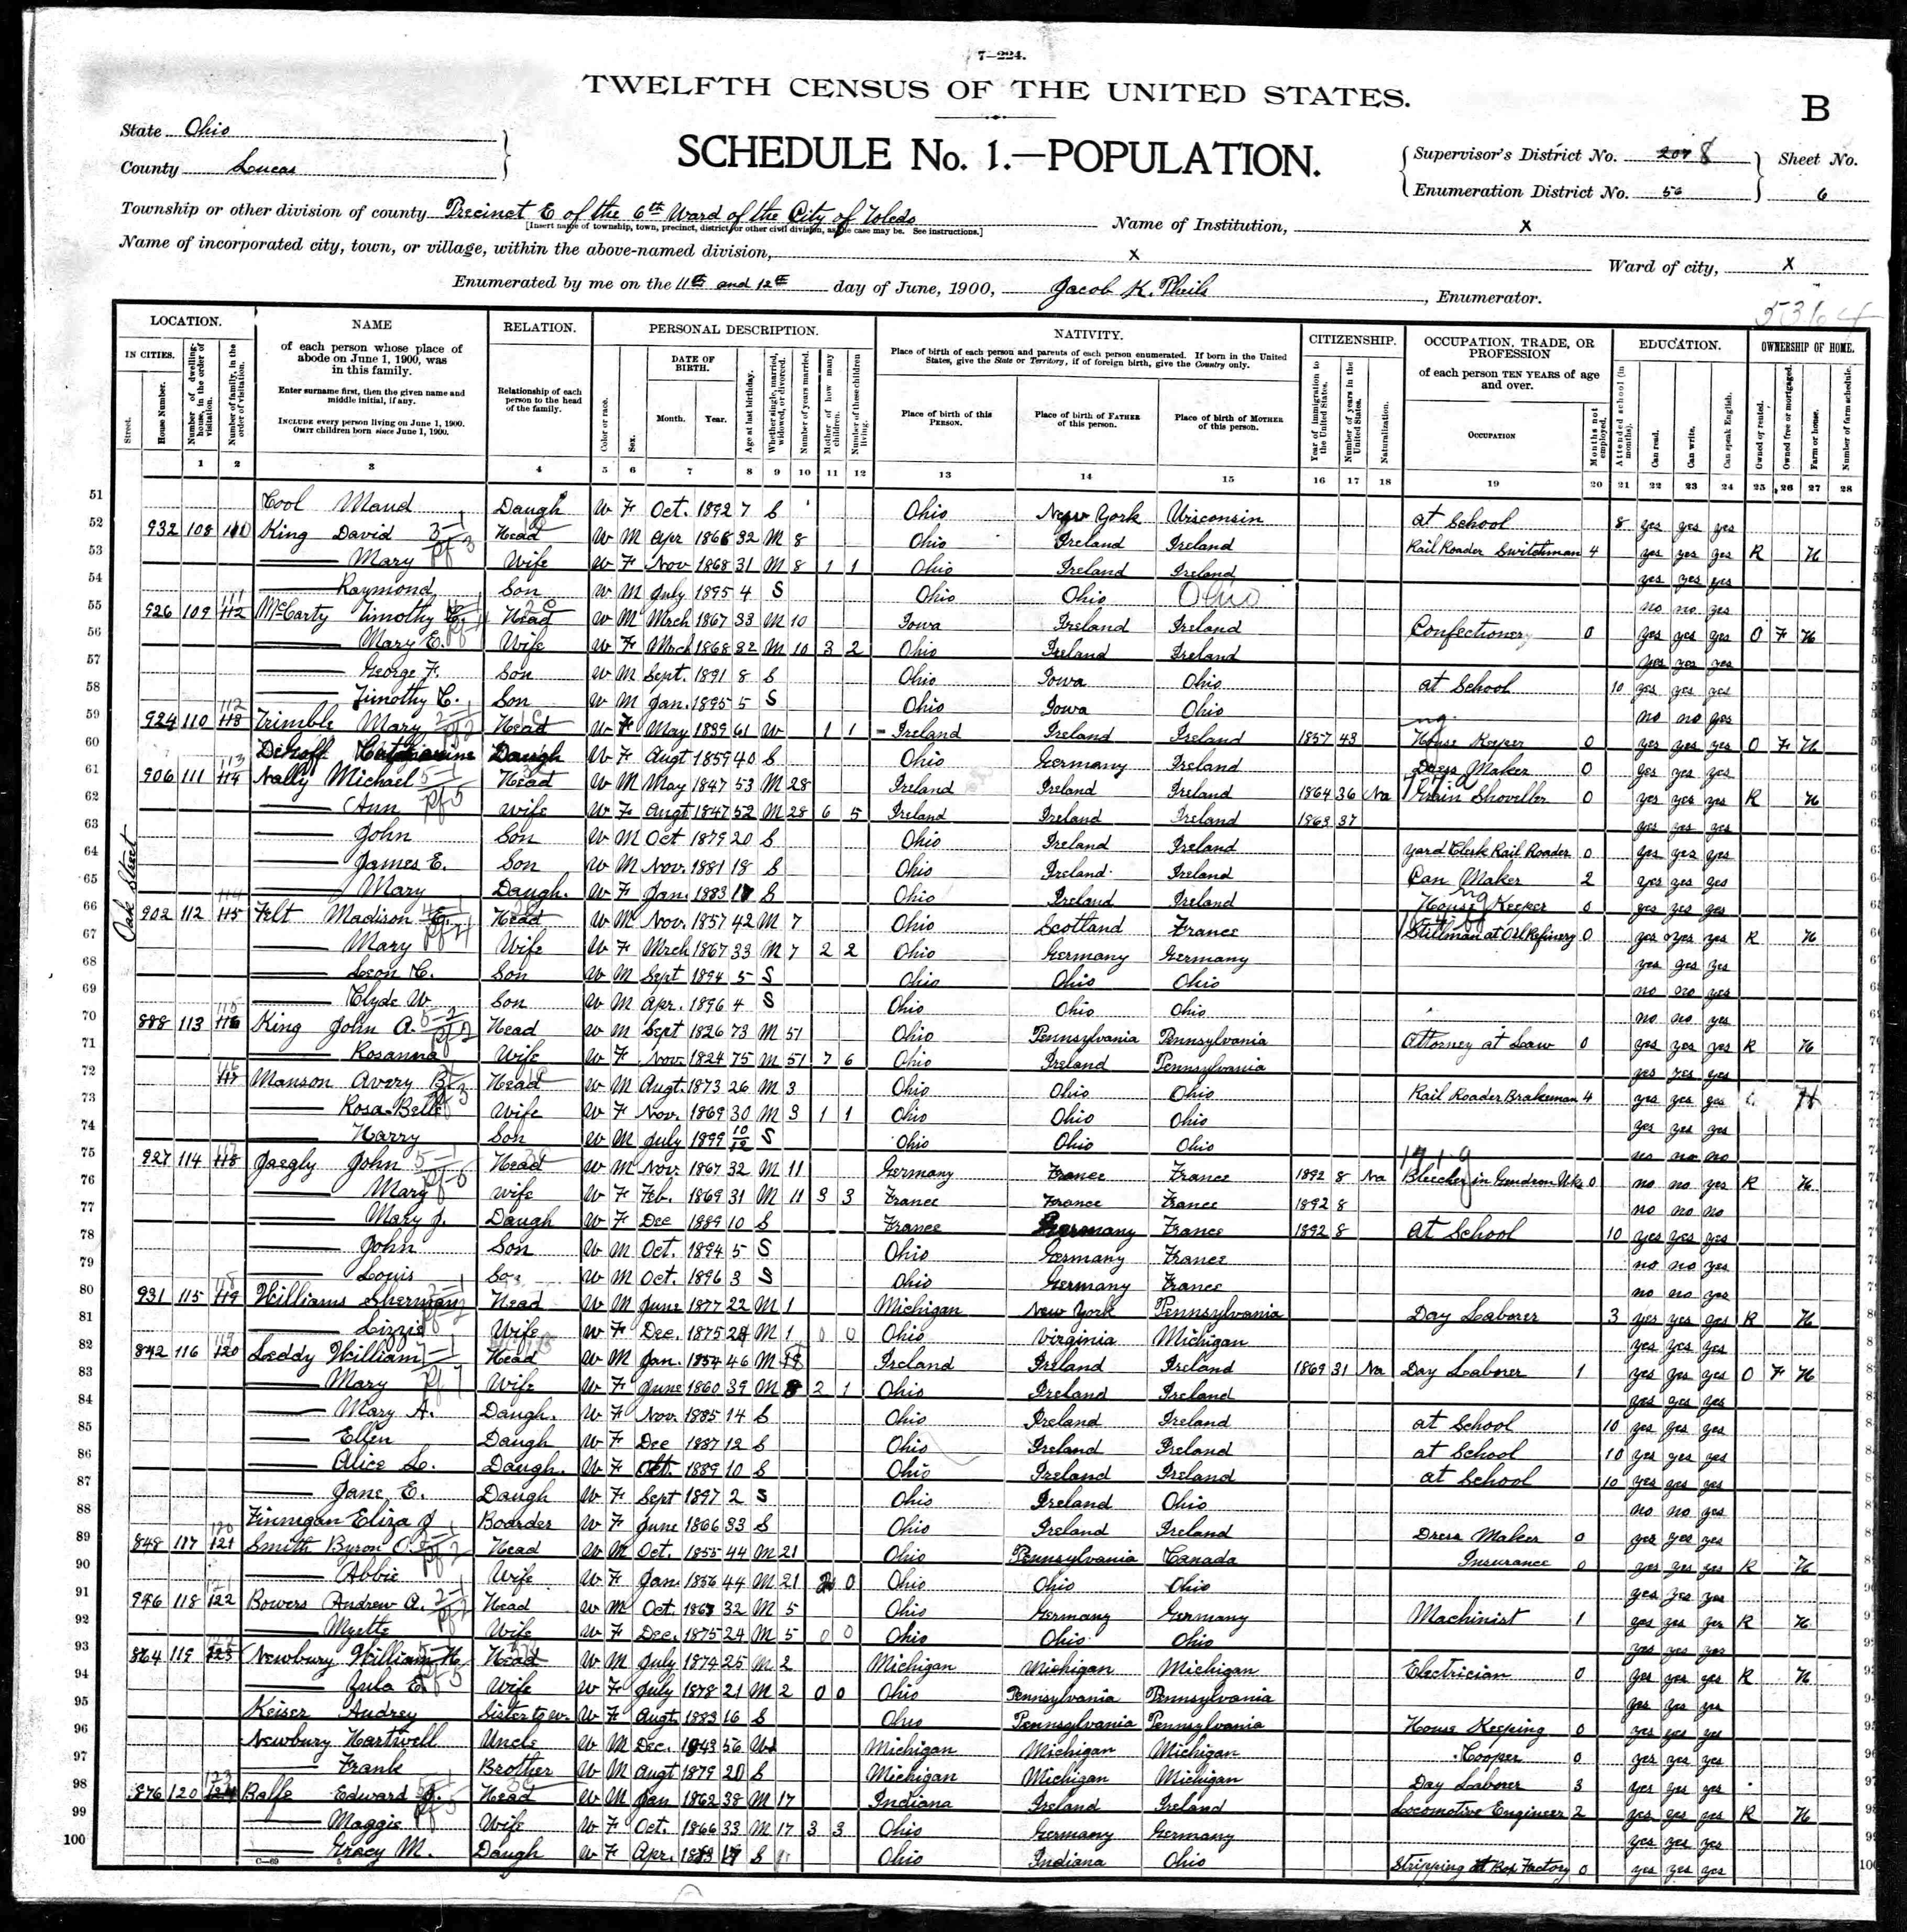 7—224.
TWELFTH CENSUS OF THE UNITED STATES.
B
State Ohio
County Lucas
SCHEDULE No. 1.—POPULATION.
Supervisor's District No. 8 Sheet No.
Enumeration District No. 56 6
Township or other division of county Precinct E of the 6th Ward of the City of Toledo Name of Institution, X
[Insert name of township, town, precinct, district, or other civil division, as the case may be. See instructions.]
Name of incorporated city, town, or village, within the above-named division, X Ward of city, X
Enumerated by me on the 11th and 12th day of June, 1900, Jacob K. Theils, Enumerator.
LOCATION. NAME RELATION. PERSONAL DESCRIPTION. NATIVITY. CITIZENSHIP. OCCUPATION, TRADE, OR PROFESSION EDUCATION. OWNERSHIP OF HOME.
IN CITIES. of each person whose place of abode on June 1, 1900, was in this family. Relationship of each person to the head of the family. DATE OF BIRTH. Place of birth of each person and parents of each person enumerated. If born in the United States, give the State or Territory; if of foreign birth, give the Country only. of each person TEN YEARS of age and over.
Enter surname first, then the given name and middle initial, if any.
INCLUDE every person living on June 1, 1900. OMIT children born since June 1, 1900.
Street. House Number. Number of dwelling-house, in the order of visitation. Number of family, in the order of visitation. Color or race. Sex. Month. Year. Age at last birthday. Whether single, married, widowed, or divorced. Number of years married. Mother of how many children. Number of these children living. Place of birth of this PERSON. Place of birth of FATHER of this person. Place of birth of MOTHER of this person. Year of immigration to the United States. Number of years in the United States. Naturalization. OCCUPATION Months not employed. Attended school (in months). Can read. Can write. Can speak English. Owned or rented. Owned free or mortgaged. Farm or house. Number of farm schedule.
1 2 3 4 5 6 7 8 9 10 11 12 13 14 15 16 17 18 19 20 21 22 23 24 25 26 27 28
Oak Street
51 Cool Maud Daugh W F Oct. 1892 7 S Ohio New York Wisconsin at School 8 yes yes yes
52 932 108 King David Head W M Apr 1868 32 M 8 Ohio Ireland Ireland Rail Roader Switchman 4 yes yes yes R H
53 Mary Wife W F Nov 1868 31 M 8 1 1 Ohio Ireland Ireland yes yes yes
54 Raymond Son W M July 1895 4 S Ohio Ohio Ohio no no yes
55 926 109 111 McCarty Timothy C. Head W M Mrch 1867 33 M 10 Iowa Ireland Ireland Confectionery 0 yes yes yes O F H
56 Mary E. Wife W F Mrch 1868 32 M 10 3 2 Ohio Ireland Ireland yes yes yes
57 George F. Son W M Sept. 1891 8 S Ohio Iowa Ohio at School 10 yes yes yes
58 Timothy C. Son W M Jan. 1895 5 S Ohio Iowa Ohio no no yes
59 924 110 112 Trimble Mary Head W F May 1839 61 W 1 1 Ireland Ireland Ireland 1857 43 House Keeper 0 yes yes yes O F H
60 Dehoff Catharine Daugh W F Augt 1859 40 S Ohio Germany Ireland Dress Maker 0 yes yes yes
61 906 111 113 Nally Michael Head W M May 1847 53 M 28 Ireland Ireland Ireland 1864 36 Na Grain Shoveller 0 yes yes yes R H
62 Ann Wife W F Augt 1847 52 M 28 6 5 Ireland Ireland Ireland 1863 37 yes yes yes
63 John Son W M Oct 1879 20 S Ohio Ireland Ireland Yard Clerk Rail Roader 0 yes yes yes
64 James E. Son W M Nov. 1881 18 S Ohio Ireland Ireland Can Maker 2 yes yes yes
65 Mary Daugh. W F Jan. 1883 17 S Ohio Ireland Ireland House Keeper 0 yes yes yes
66 902 112 114 Felt Madison Head W M Nov. 1857 42 M 7 Ohio Scotland France Stillman at Oil Refinery 0 yes yes yes R H
67 Mary Wife W F Mrch 1867 33 M 7 2 2 Ohio Germany Germany yes yes yes
68 Leon C. Son W M Sept 1894 5 S Ohio Ohio Ohio no no yes
69 Clyde W Son W M Apr. 1896 4 S Ohio Ohio Ohio no no yes
70 888 113 115 King John A. Head W M Sept 1826 73 M 51 Ohio Pennsylvania Pennsylvania Attorney at Law 0 yes yes yes R H
71 Rosanna Wife W F Nov. 1824 75 M 51 7 6 Ohio Ireland Pennsylvania yes yes yes
72 116 Manson Avery B. Head W M Augt. 1873 26 M 3 Ohio Ohio Ohio Rail Roader Brakeman 4 yes yes yes H
73 Rosa-Belle Wife W F Nov. 1869 30 M 3 1 1 Ohio Ohio Ohio yes yes yes
74 Harry Son W M July 1899 10/12 S Ohio Ohio Ohio no no no
75 927 114 117 Jaegly John Head W M Nov. 1867 32 M 11 Germany France France 1892 8 Na Bleecher in Gendron Wks 0 no no yes R H
76 Mary Wife W F Feb. 1869 31 M 11 3 3 France France France 1892 8 no no no
77 Mary J. Daugh W F Dec 1889 10 S France Germany France 1892 8 at School 10 yes yes yes
78 John Son W M Oct. 1894 5 S Ohio Germany France no no yes
79 Louis Son W M Oct. 1896 3 S Ohio Germany France no no yes
80 931 115 118 Williams Sherman Head W M June 1877 22 M 1 Michigan New York Pennsylvania Day Laborer 3 yes yes yes R H
81 Lizzie Wife W F Dec. 1875 24 M 1 0 0 Ohio Virginia Michigan yes yes yes
82 842 116 119 Leddy William Head W M Jan. 1854 46 M Ireland Ireland Ireland 1869 31 Na Day Laborer 1 yes yes yes O F H
83 Mary Wife W F June 1860 39 M 2 1 Ohio Ireland Ireland yes yes yes
84 Mary A. Daugh. W F Nov. 1885 14 S Ohio Ireland Ireland at School 10 yes yes yes
85 Ellen Daugh W F Dec 1887 12 S Ohio Ireland Ireland at School 10 yes yes yes
86 Alice L. Daugh. W F Oct. 1889 10 S Ohio Ireland Ireland at School 10 yes yes yes
87 Jane E. Daugh W F Sept 1897 2 S Ohio Ireland Ohio no no yes
88 Finnigan Eliza J Boarder W F June 1866 33 S Ohio Ireland Ireland Dress Maker 0 yes yes yes
89 848 117 120 Smith Byron C. Head W M Oct. 1855 44 M 21 Ohio Pennsylvania Canada Insurance 0 yes yes yes R H
90 Abbie Wife W F Jan. 1856 44 M 21 0 Ohio Ohio Ohio yes yes yes
91 118 121 Bowers Andrew A. Head W M Oct. 32 M 5 Ohio Germany Germany Machinist 1 yes yes yes R H
92 Myette Wife W F Dec. 1875 24 M 5 0 0 Ohio Ohio Ohio yes yes yes
93 864 119 Newbury William H. Head W M July 1874 25 M 2 Michigan Michigan Michigan Electrician 0 yes yes yes R H
94 Zula E. Wife W F July 1878 21 M 2 0 0 Ohio Pennsylvania Pennsylvania yes yes yes
95 Keiser Audrey Sister to w. W F Augt. 1883 16 S Ohio Pennsylvania Pennsylvania House Keeping 0 yes yes yes
96 Newbury Hartwell Uncle W M Dec. 1843 56 Wd Michigan Michigan Michigan Cooper 0 yes yes yes
97 Frank Brother W M Augt 1879 20 S Michigan Michigan Michigan Day Laborer 3 yes yes yes
98 876 120 123 Rolfe Edward J. Head W M Jan 1862 38 M 17 Indiana Ireland Ireland Locomotive Engineer 2 yes yes yes R H
99 Maggie Wife W F Oct. 1866 33 M 17 3 3 Ohio Germany Germany yes yes yes
100 Gracy M. Daugh W F Apr. 1883 17 S Ohio Indiana Ohio Stripping at Box Factory 0 yes yes yes